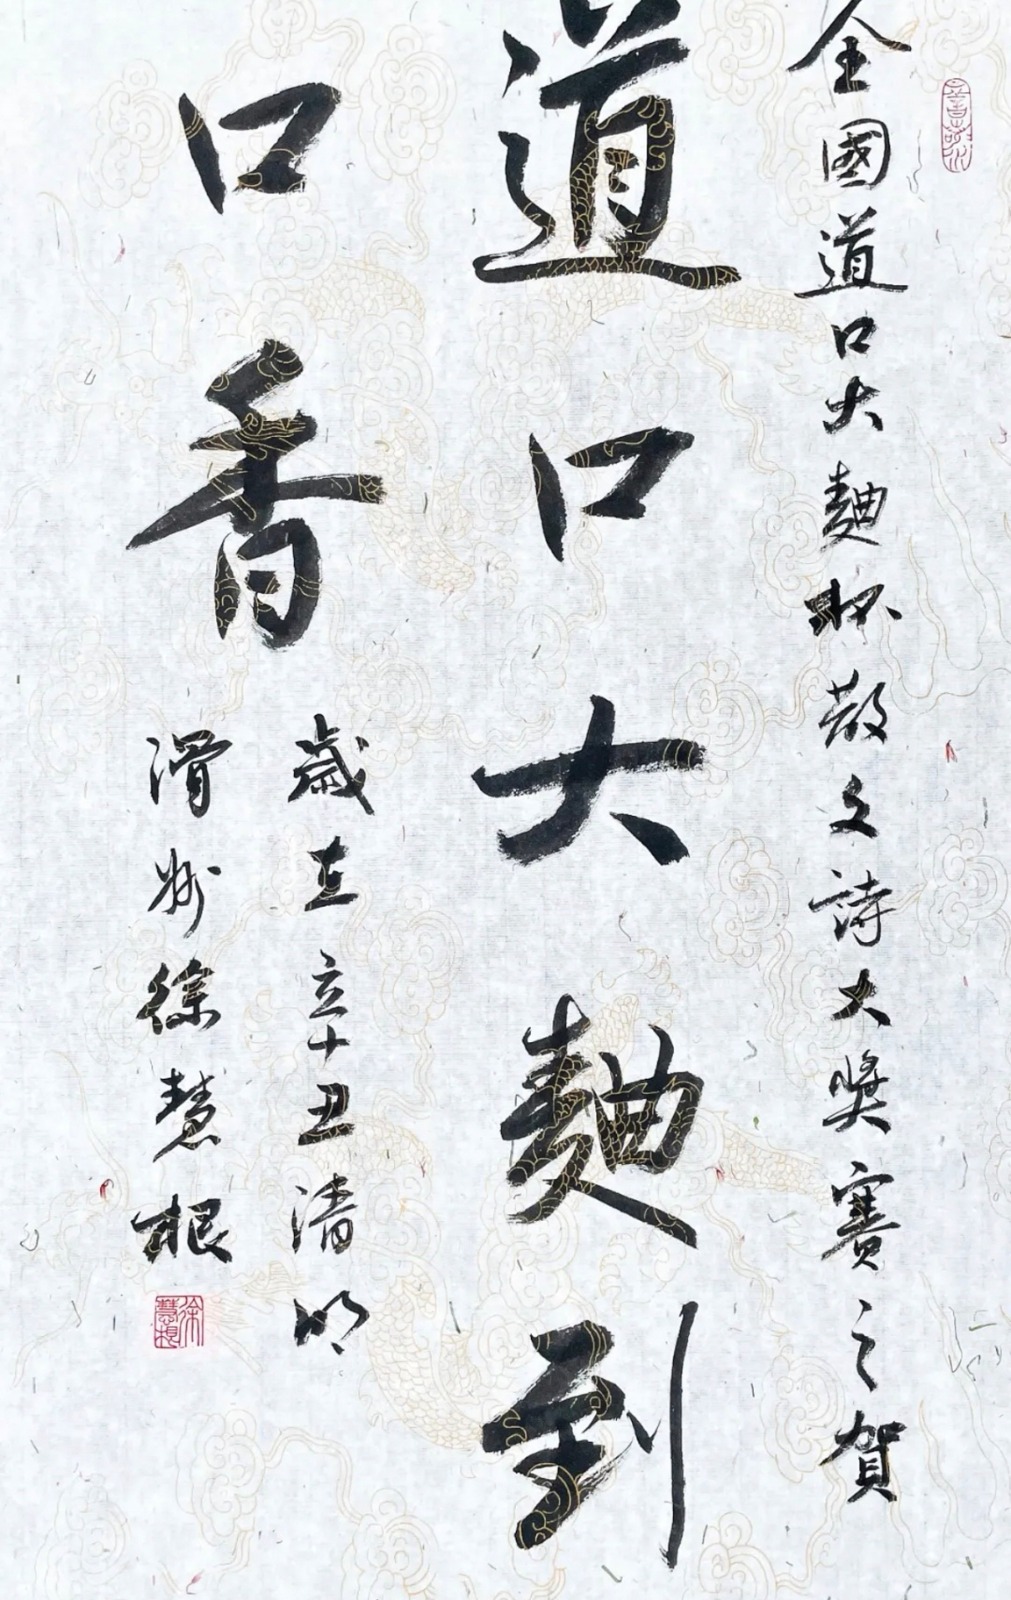 全國道口大麯杯散文詩大獎賽之賀
道口大麯到
口香
歲在辛丑清明
滑州徐慧根
徐慧根